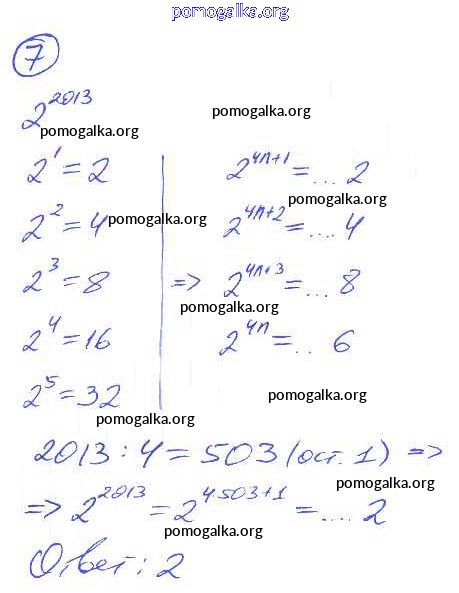 pomogalka.org
7
2^2013
pomogalka.org
pomogalka.org
2^1 = 2
2^(4n+1) = ... 2
pomogalka.org
2^2 = 4
pomogalka.org
2^(4n+2) = .... 4
2^3 = 8
=> 2^(4n+3) = ... 8
pomogalka.org
2^4 = 16
2^(4n) = .. 6
2^5 = 32
pomogalka.org
pomogalka.org
2013 : 4 = 503 (ост. 1) =>
pomogalka.org
=> 2^2013 = 2^(4·503+1) = .... 2
pomogalka.org
Ответ: 2